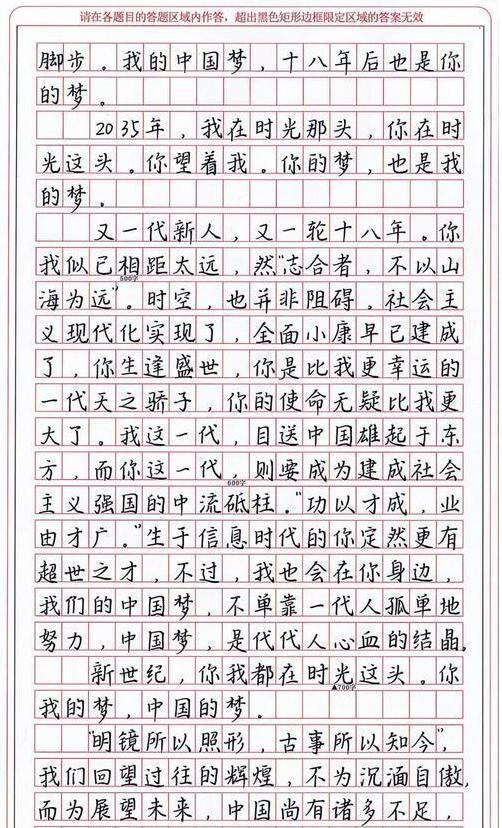 请在各题目的答题区域内作答，超出黑色矩形边框限定区域的答案无效
脚步。我的中国梦，十八年后也是你
的梦。
2035年，我在时光那头，你在时
光这头。你望着我。你的梦，也是我
的梦。
又一代新人，又一轮十八年。你
我似已相距太远，然“志合者，不以山
500字
海为远”。时空，也并非阻碍，社会主
义现代化实现了，全面小康早已建成
了，你生逢盛世，你是比我更幸运的
一代天之骄子，你的使命无疑比我更
大了。我这一代，目送中国雄起于东
方，而你这一代，则要成为建成社会
600字
主义强国的中流砥柱。“功以才成，业
由才广。”生于信息时代的你定然更有
超世之才，不过，我也会在你身边，
我们的中国梦，不单靠一代人孤单地
努力，中国梦，是代代人心血的结晶。
新世纪，你我都在时光这头。你
▲700字
我的梦，中国的梦。
“明镜所以照形，古事所以知今”，
我们回望过往的辉煌，不为沉湎自傲，
而为展望未来，中国尚有诸多不足，